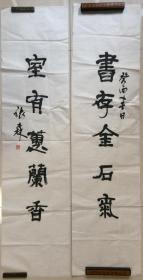 書存金石氣
癸酉春日
室有蕙蘭香